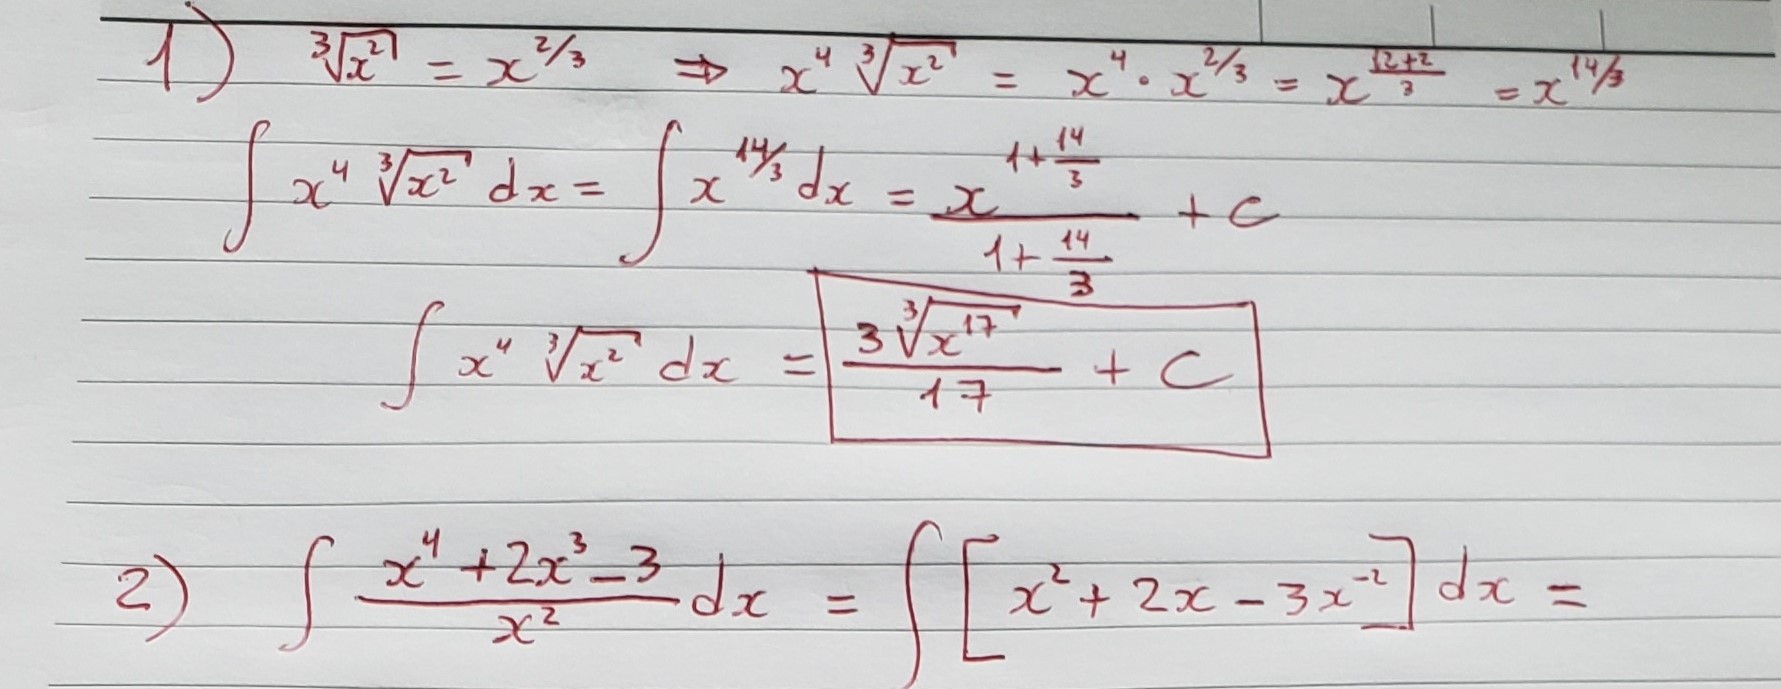 1) ∛x² = x^{2/3} ⇒ x⁴ ∛x² = x⁴ · x^{2/3} = x^{\frac{12+2}{3}} = x^{14/3}
∫ x⁴ ∛x² dx = ∫ x^{14/3} dx = \frac{x^{1+\frac{14}{3}}}{1+\frac{14}{3}} + C
∫ x⁴ ∛x² dx = \frac{3∛x^{17}}{17} + C
2) ∫ \frac{x⁴ + 2x³ - 3}{x²} dx = ∫ [x² + 2x - 3x^{-2}] dx =